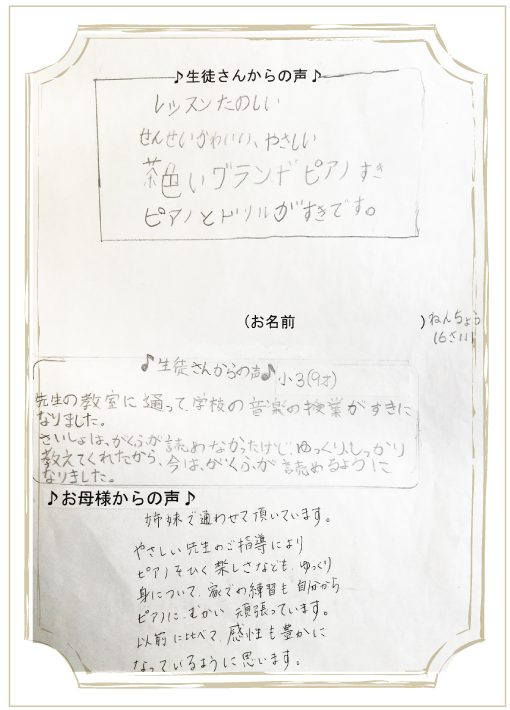 ♪生徒さんからの声♪
レッスンたのしい
せんせいかわいい、やさしい
茶色いグランドピアノすき
ピアノとドリルがすきです。
(お名前 ) ねんちょう
(6さい)
♪生徒さんからの声♪ 小3(9才)
先生の教室に通って、学校の音楽の授業がすきに
なりました。
さいしょは、がくふが読めなかったけど、ゆっくり、しっかり
教えてくれたから、今は、がくふが読めるように
なりました。
♪お母様からの声♪
姉妹で通わせて頂いています。
やさしい先生のご指導により
ピアノをひく楽しさなども、ゆっくり
身について、家での練習も自分から
ピアノに、むかい頑張っています。
以前に比べて、感性も豊かに
なっているように思います。